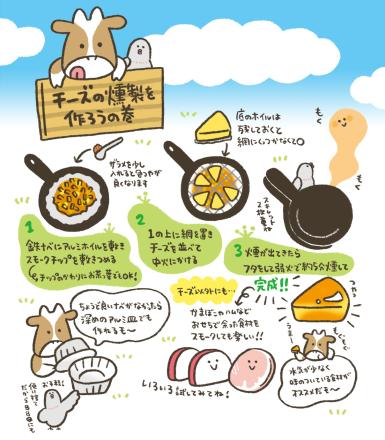 チーズの燻製を
作ろうの巻
ザラメを少し
入れると色つやが
良くなります
底のホイルは
残しておくと
網にくっつかなくて◎
もく
もく
1 鉄ナベにアルミホイルを敷き
スモークチップを敷きつめる
チップのかわりにお茶葉でもOK!
2 1の上に網を置き
チーズを並べて
中火にかける
3 煙が出てきたら
フタをして弱火で約15分燻して
完成!!
ちょうど良いナベがなかったら
深めのアルミ皿でも
作れるも〜
チーズ以外にも…
かまぼこやハムなど
おせちで余った食材を
スモークしても楽しい!!
いろいろ試してみてね!
つやっ
もぐもぐ
水気が少なく
味のついている食材が
オススメだも〜
お手軽に
使い捨て